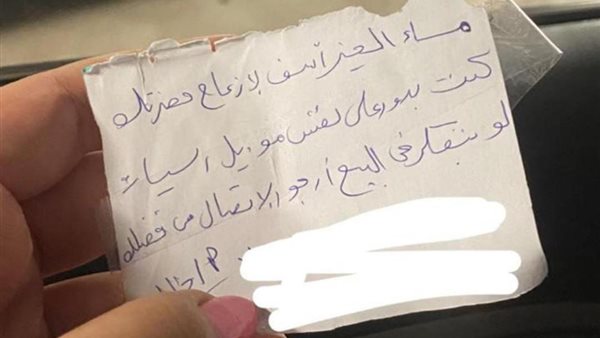 مساء الخير أسف لإزعاج حضرتك
كنت بدور على نفس موديل السيارة
لو بتفكر في البيع أرجو الاتصال من فضلك